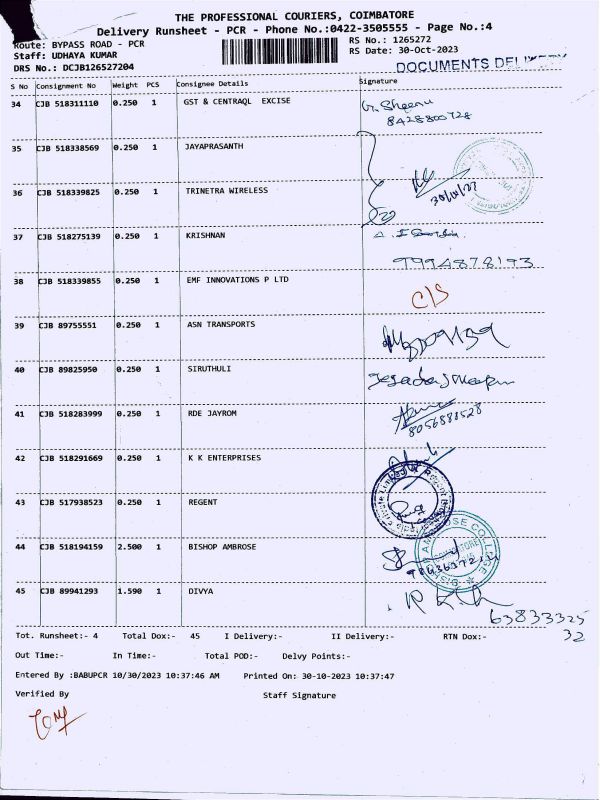 THE PROFESSIONAL COURIERS, COIMBATORE
Delivery Runsheet - PCR - Phone No.:0422-3505555 - Page No.:4
Route: BYPASS ROAD - PCR RS No.: 1265272
Staff: UDHAYA KUMAR RS Date: 30-Oct-2023
DRS No.: DCJB126527204 DOCUMENTS
S No Consignment No Weight PCS Consignee Details Signature
34 CJB 518311110 0.250 1 GST & CENTRAQL EXCISE G. Sheenu
8428800728
35 CJB 518338569 0.250 1 JAYAPRASANTH
36 CJB 518339825 0.250 1 TRINETRA WIRELESS
37 CJB 518275139 0.250 1 KRISHNAN
38 CJB 518339855 0.250 1 EMF INNOVATIONS P LTD C/S
39 CJB 89755551 0.250 1 ASN TRANSPORTS
40 CJB 89825950 0.250 1 SIRUTHULI
41 CJB 518283999 0.250 1 RDE JAYROM
8056883528
42 CJB 518291669 0.250 1 K K ENTERPRISES
43 CJB 517938523 0.250 1 REGENT
44 CJB 518194159 2.500 1 BISHOP AMBROSE
45 CJB 89941293 1.590 1 DIVYA
63833325
32
Tot. Runsheet:- 4 Total Dox:- 45 I Delivery:- II Delivery:- RTN Dox:-
Out Time:- In Time:- Total POD:- Delvy Points:-
Entered By :BABUPCR 10/30/2023 10:37:46 AM Printed On: 30-10-2023 10:37:47
Verified By Staff Signature